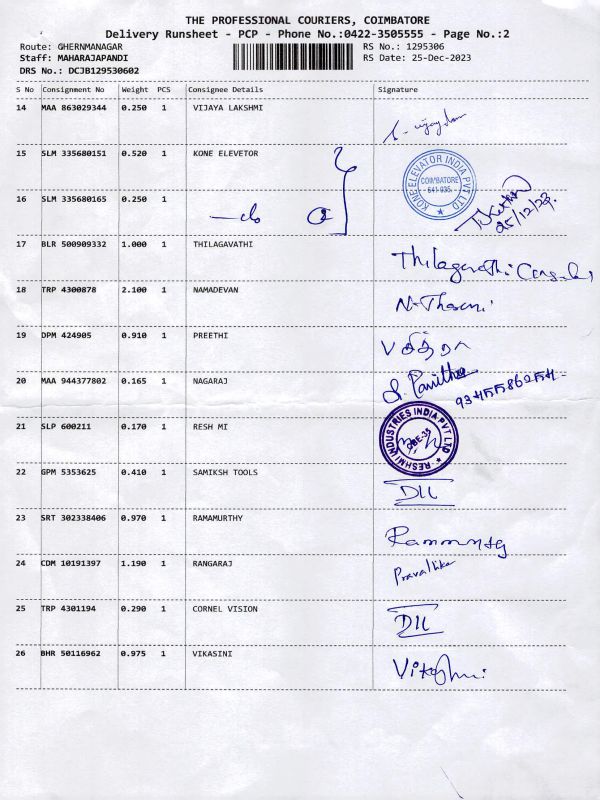 THE PROFESSIONAL COURIERS, COIMBATORE
Delivery Runsheet - PCP - Phone No.:0422-3505555 - Page No.:2
Route: GHERNMANAGAR RS No.: 1295306
Staff: MAHARAJAPANDI RS Date: 25-Dec-2023
DRS No.: DCJB129530602
S No Consignment No Weight PCS Consignee Details Signature
14 MAA 863029344 0.250 1 VIJAYA LAKSHMI
15 SLM 335680151 0.520 1 KONE ELEVETOR
KONE ELEVATOR INDIA PVT LTD
COIMBATORE
641-035.
16 SLM 335680165 0.250 1
25/12/23.
17 BLR 500909332 1.000 1 THILAGAVATHI
18 TRP 4300878 2.100 1 NAMADEVAN
19 DPM 424905 0.910 1 PREETHI
20 MAA 944377802 0.165 1 NAGARAJ
21 SLP 600211 0.170 1 RESH MI
RESHMI INDUSTRIES INDIA PVT LTD
CBE-35
22 GPM 5353625 0.410 1 SAMIKSH TOOLS
23 SRT 302338406 0.970 1 RAMAMURTHY
24 CDM 10191397 1.190 1 RANGARAJ Pravallika
25 TRP 4301194 0.290 1 CORNEL VISION
26 BHR 50116962 0.975 1 VIKASINI